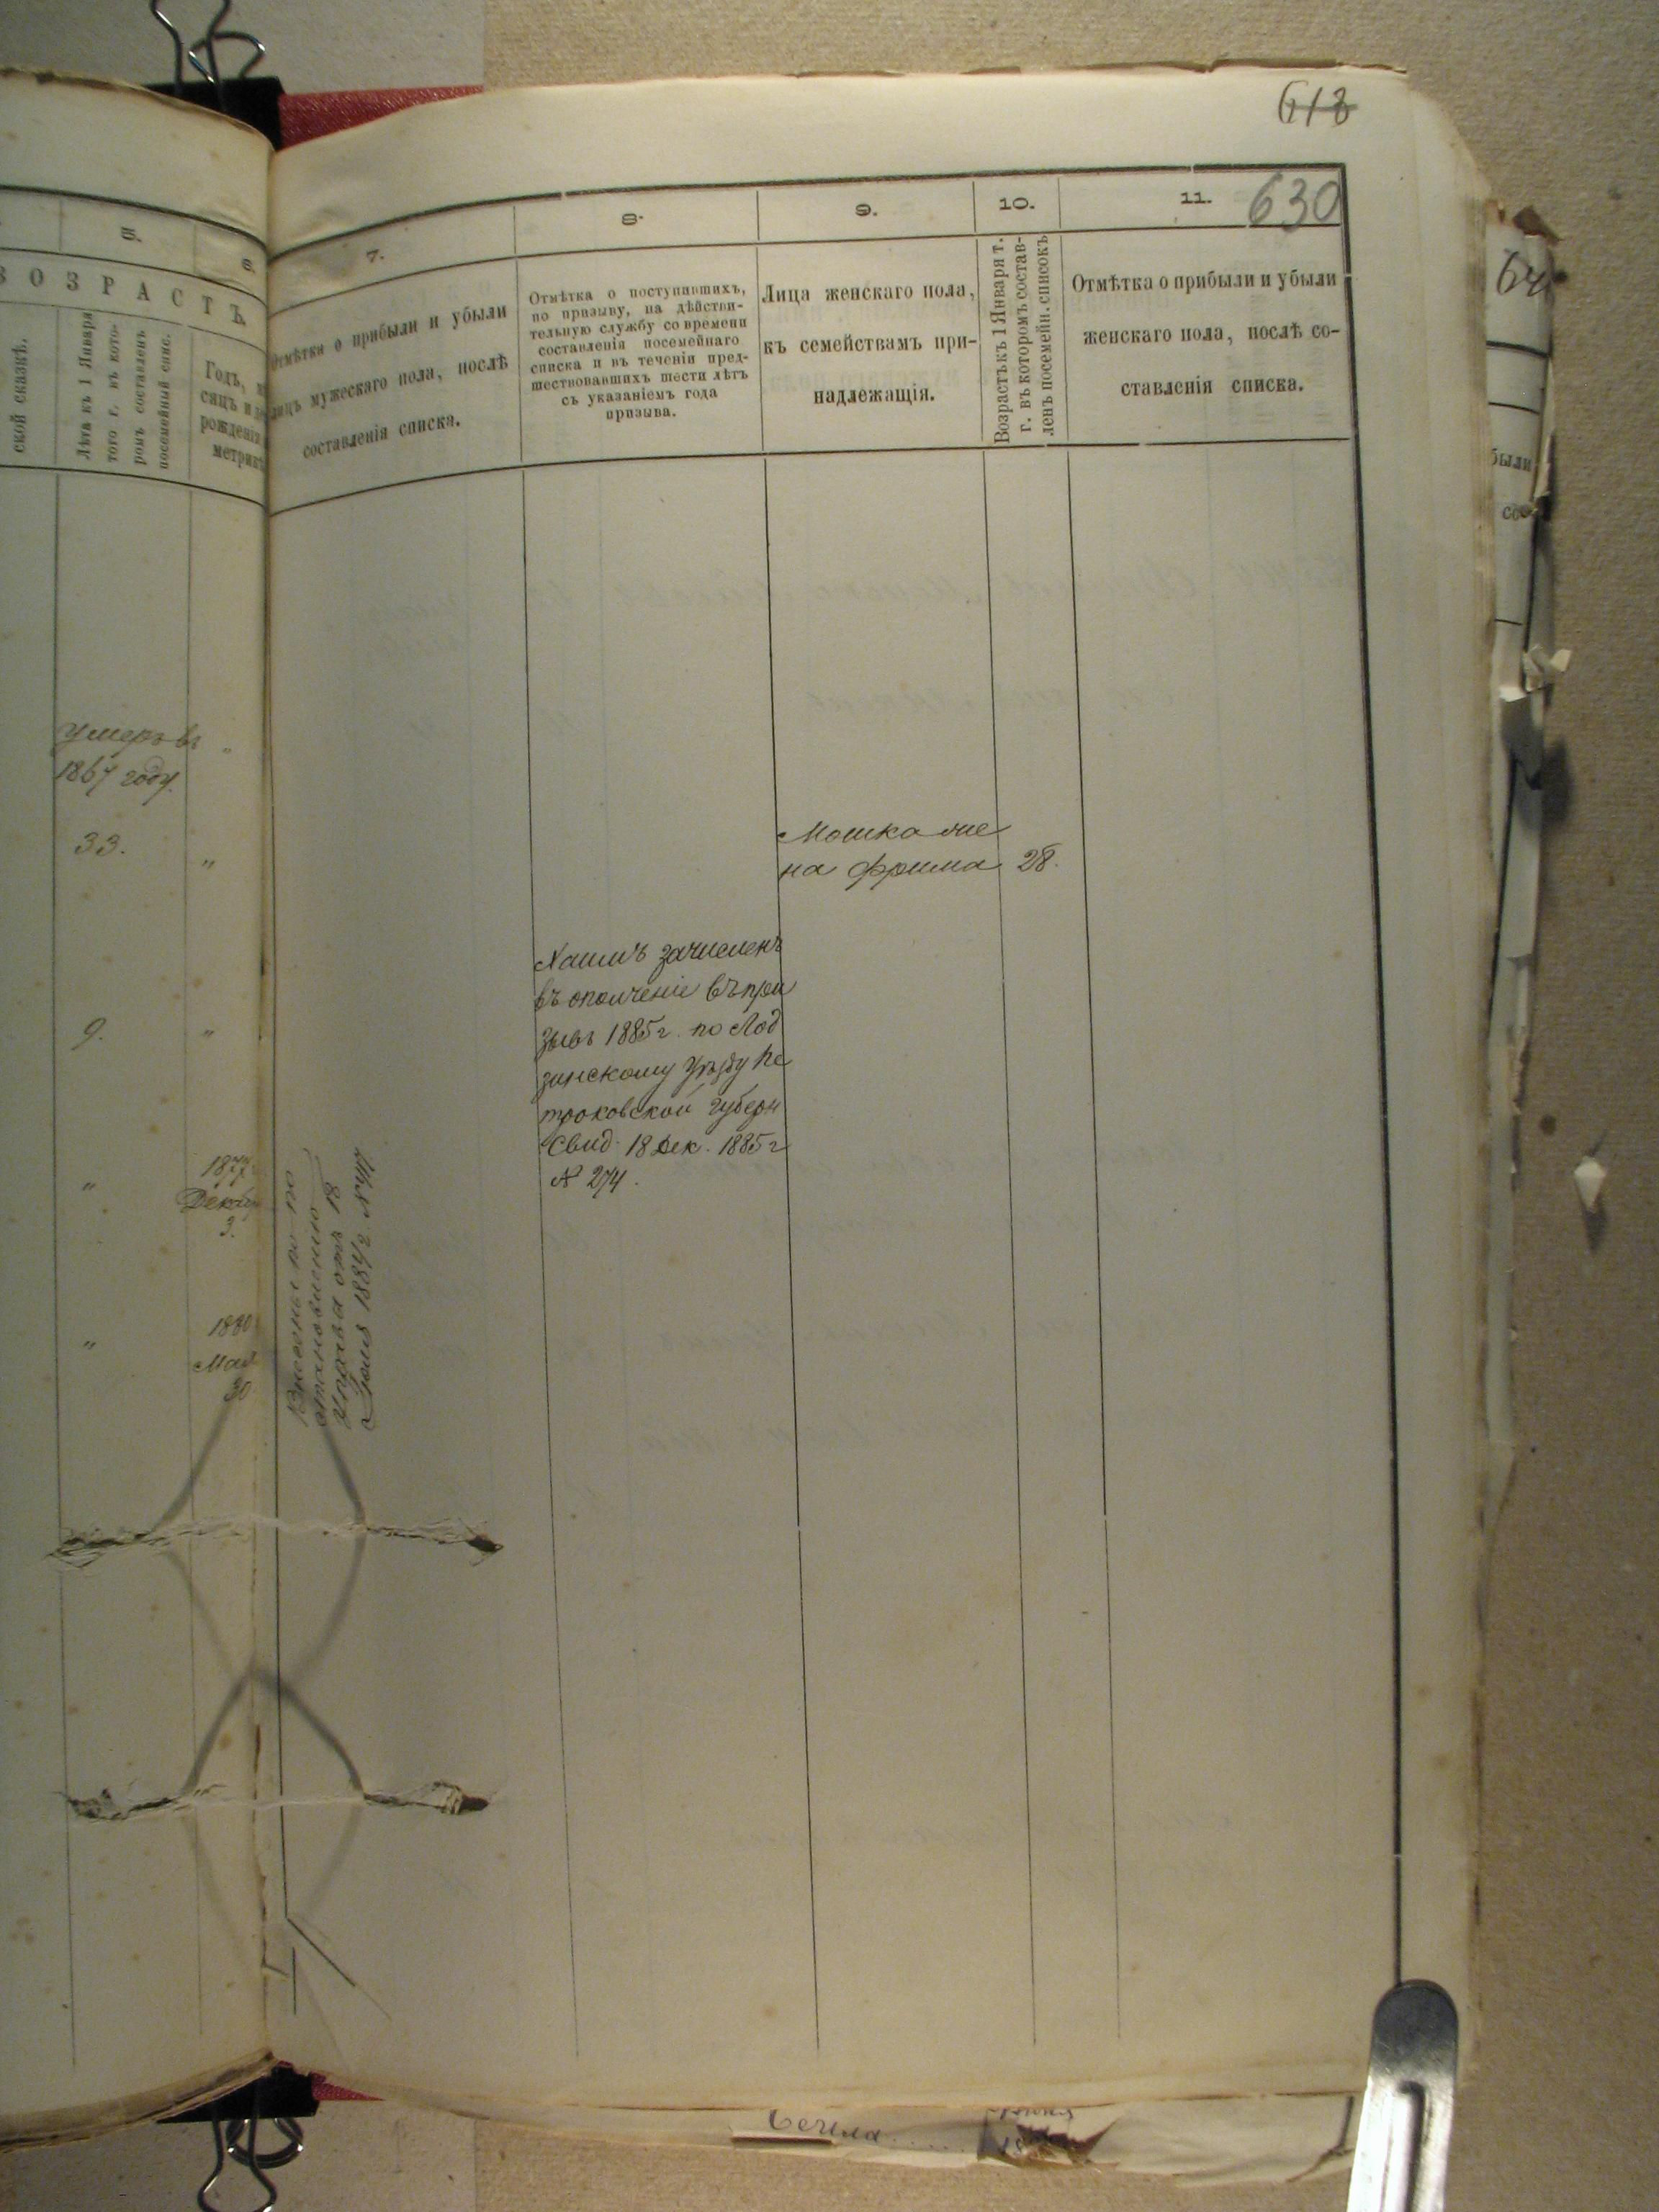 618
630
5.
6.
7.
8.
9.
10.
11.
ВОЗРАСТЪ.
ской сказкѣ.
Лѣта къ 1 Января
того г. въ кото-
ромъ составленъ
посемейный спис.
Годъ, мѣ
сяцъ и де
рожденія
метрик
Отмѣтка о прибыли и убыли
лицъ мужескаго пола, послѣ
составленія списка.
Отмѣтка о поступившихъ,
по призыву, на дѣйстви-
тельную службу со времени
составленія посемейнаго
списка и въ теченіи пред-
шествовавшихъ шести лѣтъ
съ указаніемъ года
призыва.
Лица женскаго пола,
къ семействамъ при-
надлежащія.
Возрастъ къ 1 Января т.
г. въ которомъ состав-
ленъ посемейн. списокъ
Отмѣтка о прибыли и убыли
женскаго пола, послѣ со-
ставленія списка.
были
умеръ въ "
1867 году.
33. "
Мошка же
на Фрима 28.
9. "
Хаимъ зачисленъ
въ ополченіе въ при
зывъ 1885 г. по Лод
зинскому Уѣзду Пе
троковской Губерн
Свид. 18 Дек. 1885 г
№ 274.
" 1877
Декабр
3.
" 1880
Мая
30
Внесены по по
становленію
Управы отъ 18
Іюля 1884 г. №